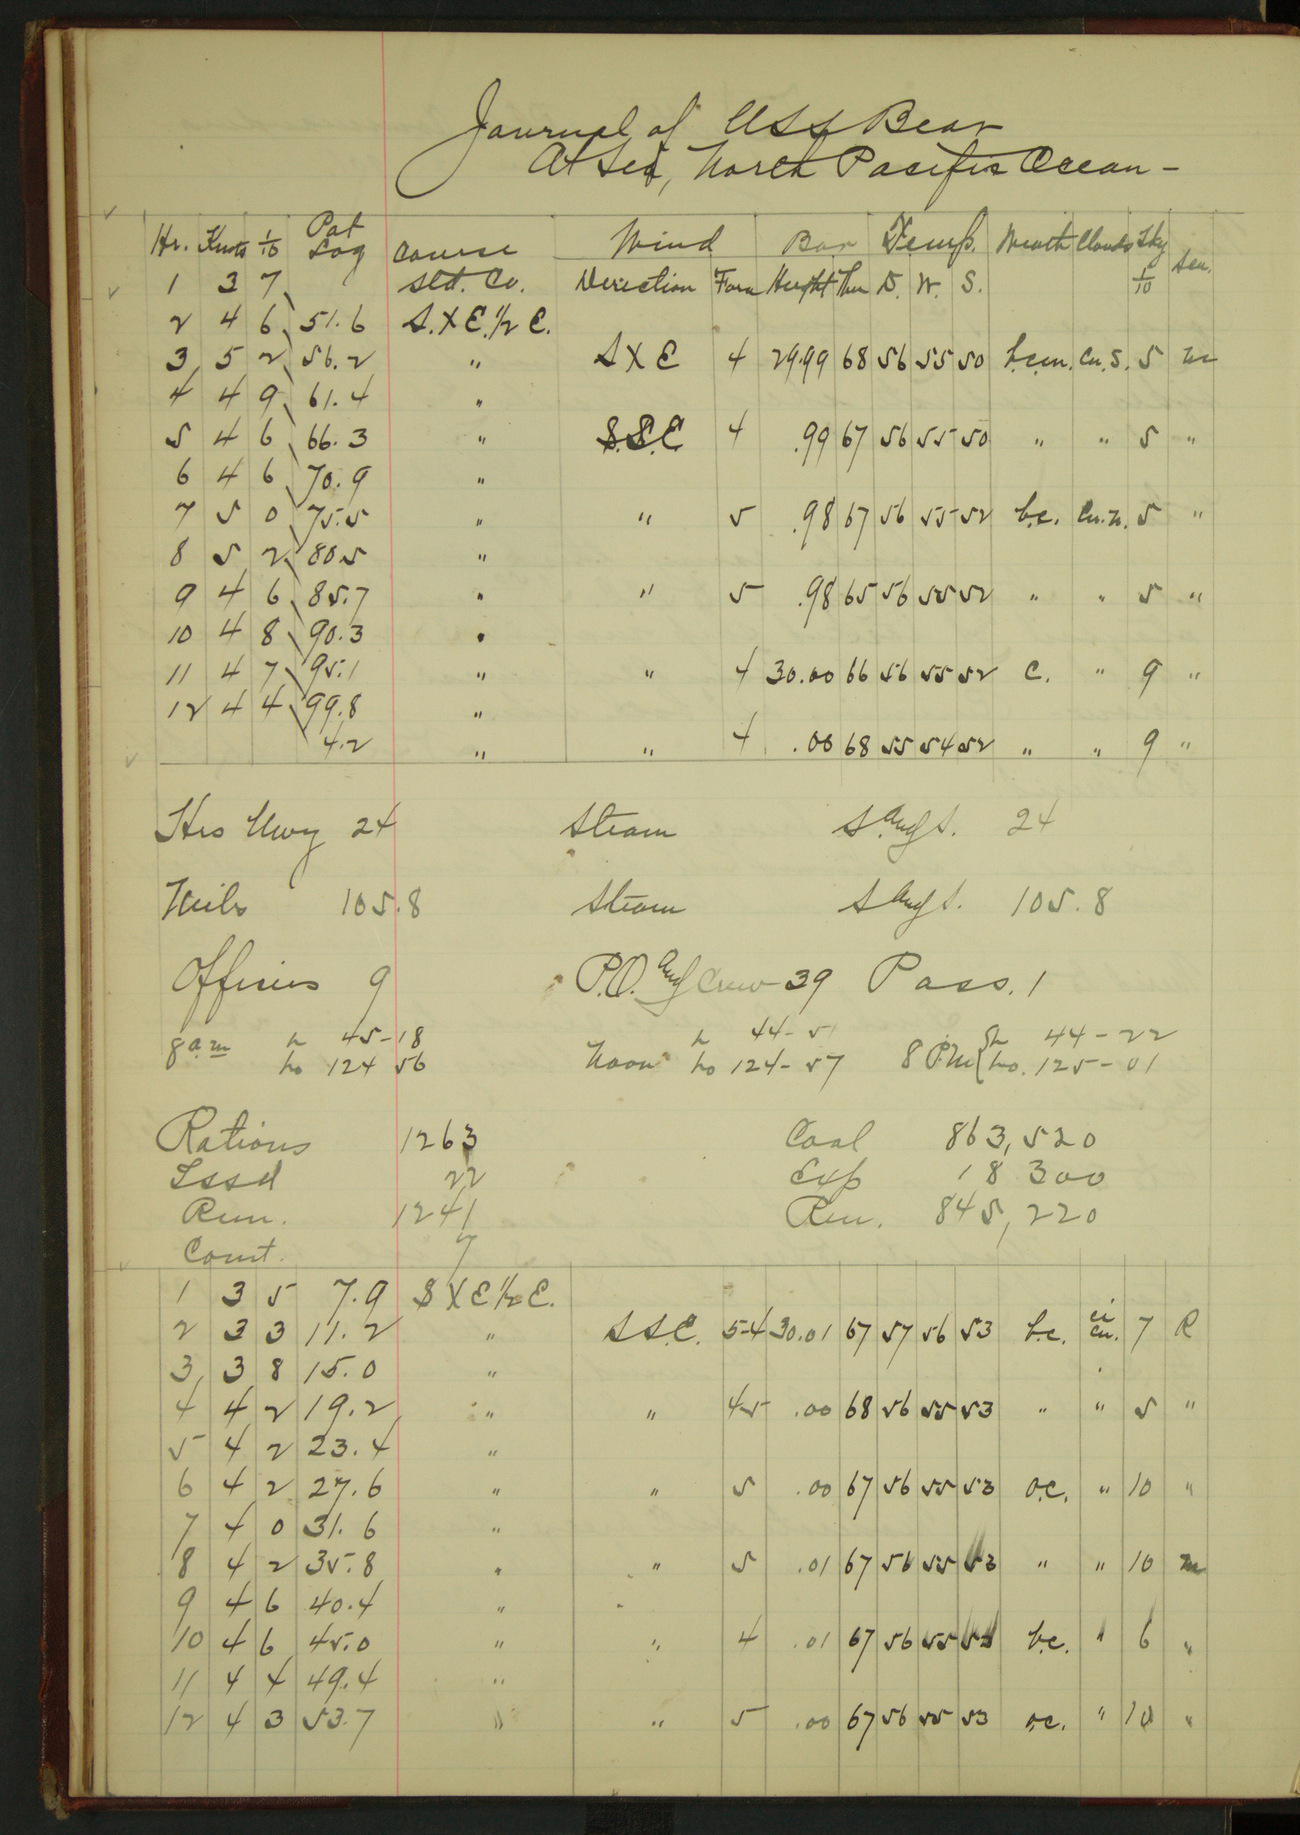 Journal of USS Bear
At Sea, North Pacific Ocean -
Hr. Knots 1/10 Pat Log Course Wind Bar Temp. Weath Clouds Sky 1/10 Sea.
1 3 7 Std. Co. Direction Force Height Ther D. W. S.
2 4 6 51.6 S.XE.1/2 E.
3 5 2 56.2 " SXE 4 29.99 68 56 55 50 b.c.m. Cu.S. 5 m
4 4 9 61.4 "
5 4 6 66.3 " S.S.E 4 .99 67 56 55 50 " " 5 "
6 4 6 70.9 "
7 5 0 75.5 " " 5 .98 67 56 55 52 b.c. Cu.N. 5 "
8 5 2 80.5 "
9 4 6 85.7 " " 5 .98 65 56 55 52 " " 5 "
10 4 8 90.3 "
11 4 7 95.1 " " 4 30.00 66 56 55 52 C. " 9 "
12 4 4 99.8 "
4.2 " " 4 .00 68 55 54 52 " " 9 "
Hrs Uwy 24 Steam S and S. 24
Miles 105.8 Steam S and S. 105.8
Officers 9 P.O. and Crew 39 Pass. 1
8 am 45-18 Noon 44-51 8 P.M. 44-22
Lo 124 56 Lo 124-57 Lo. 125-01
Rations 1263 Coal 863,520
Issd 22 Exp 18 300
Rem. 1241 Rem. 845,220
Comt. 7
1 3 5 7.9 SXE1/2E.
2 3 3 11.2 " SSE. 5-4 30.01 67 57 56 53 b.c. ci cu. 7 R
3 3 8 15.0 "
4 4 2 19.2 " " 4-5 .00 68 56 55 53 " " 5 "
5 4 2 23.4 "
6 4 2 27.6 " " 5 .00 67 56 55 53 o.c. " 10 "
7 4 0 31.6 "
8 4 2 35.8 " " 5 .01 67 56 55 53 " " 10 m
9 4 6 40.4 "
10 4 6 45.0 " " 4 .01 67 56 55 b.c. " 6 "
11 4 4 49.4 "
12 4 3 53.7 " " 5 .00 67 56 55 53 o.c. " 10 "